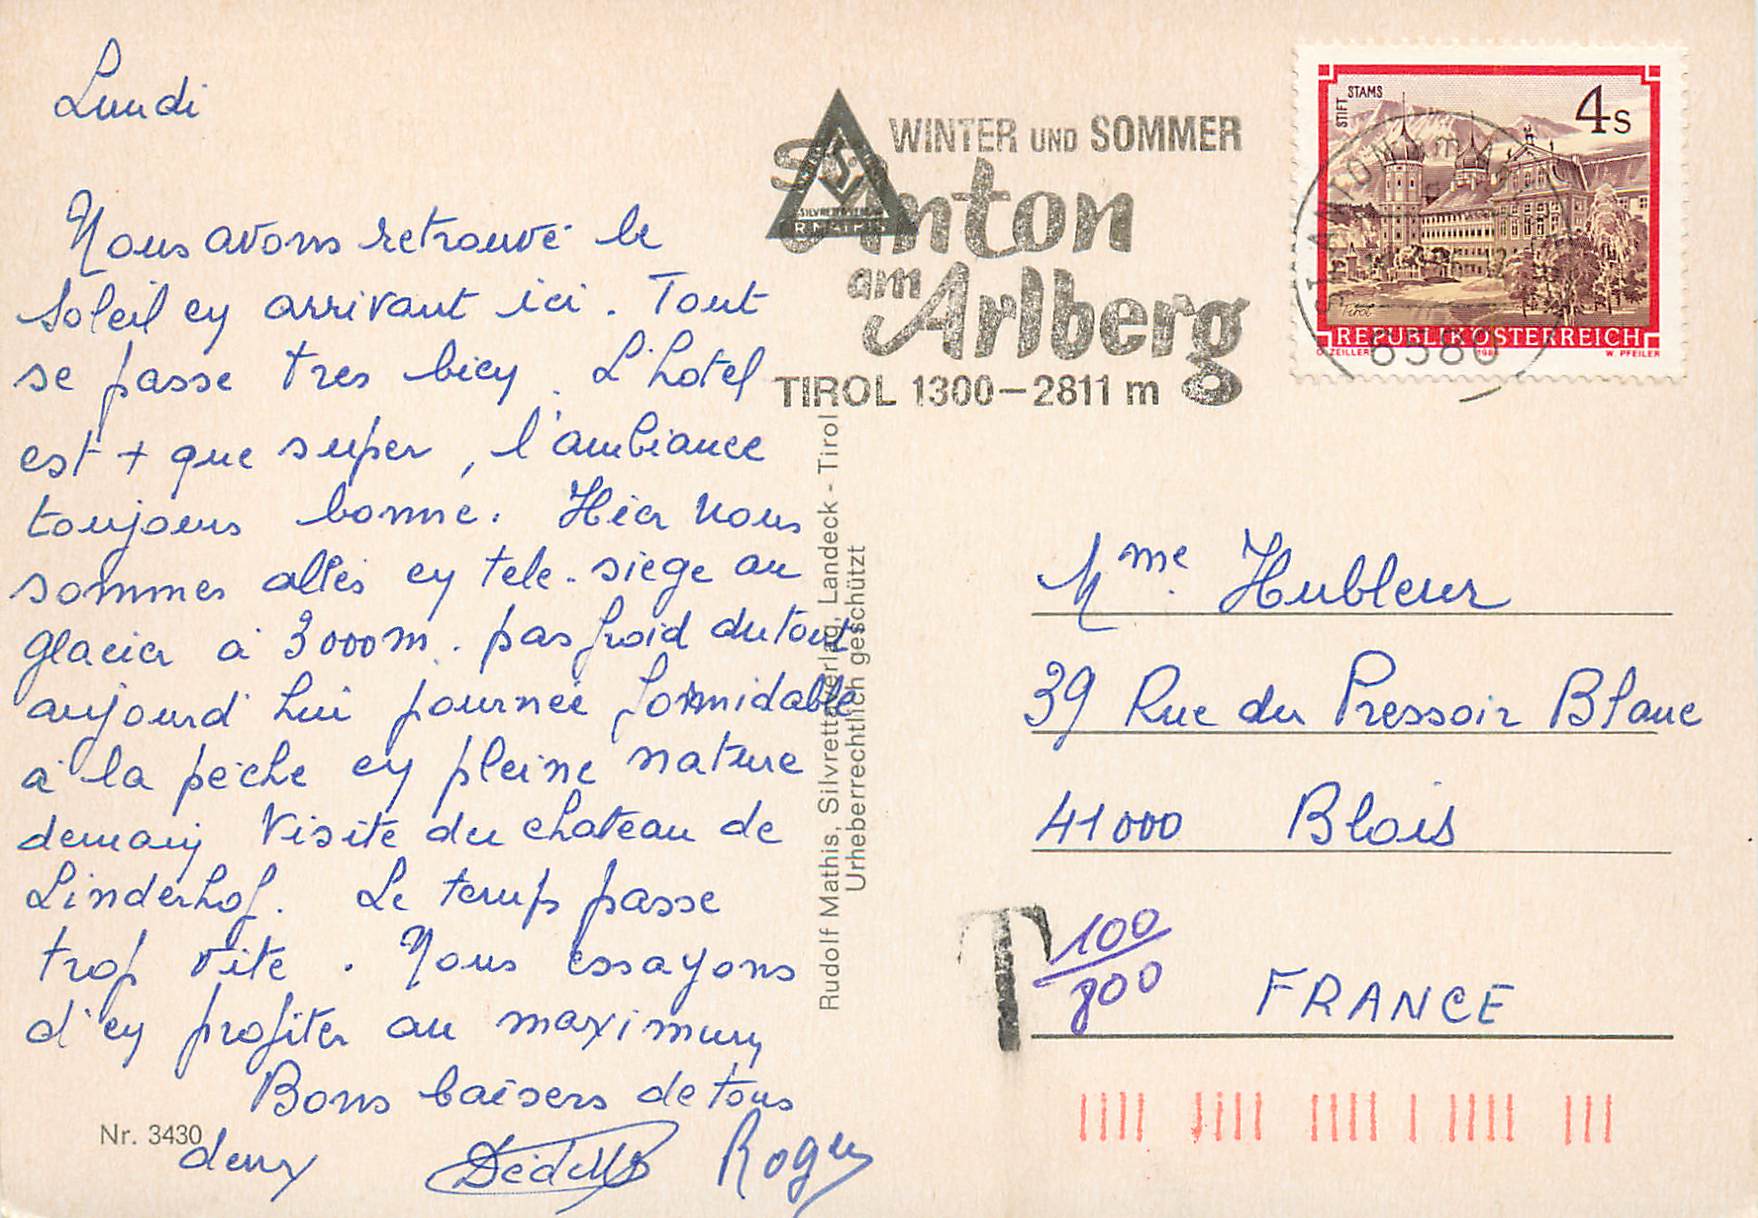 Lundi
Nous avons retrouvé le
soleil en arrivant ici. Tout
se passe tres bien. L'hotel
est + que super, l'ambiance
toujours bonne. Hier nous
sommes allés en tele-siege au
glacier à 3000m. pas froid du tout
aujourd'hui journée formidable
à la pêche en pleine nature
demain Visite du chateau de
Linderhof. Le temps passe
trop vite. Nous essayons
d'en profiter au maximum
Bons baisers de tous
deux Roger
Nr. 3430
Rudolf Mathis, Silvrettaverlag, Landeck - Tirol
Urheberrechtlich geschützt
WINTER UND SOMMER
Anton
am
Arlberg
TIROL 1300-2811 m
STIFT STAMS
4S
Tirol
REPUBLIK ÖSTERREICH
O. ZEILLER 1984 W. PFEILER
6580
Mme. Hubleur
39 Rue du Pressoir Blanc
41000 Blois
T 100/800
FRANCE